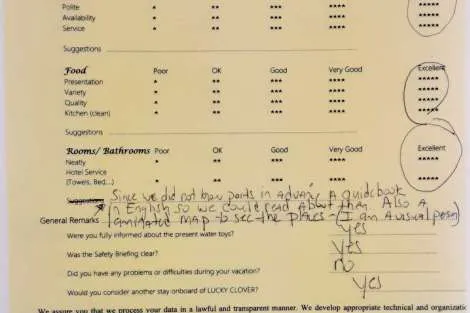 Polite * ** *** **** *****
Availability * ** *** **** *****
Service * ** *** **** *****
Suggestions
Food Poor OK Good Very Good Excellent
Presentation * ** *** **** *****
Variety * ** *** **** *****
Quality * ** *** **** *****
Kitchen (clean) * ** *** **** *****
Suggestions
Rooms/ Bathrooms Poor OK Good Very Good Excellent
Neatly * ** *** **** *****
Hotel Service
(Towels, Bed...) * ** *** **** *****
Suggestions Since we did not know ports in advance A guidebook
in English so we could read about them Also A
General Remarks laminated map to see the places - (I am a visual person)
Were you fully informed about the present water toys? yes
Was the Safety Briefing clear? yes
Did you have any problems or difficulties during your vacation? no
Would you consider another stay onboard of LUCKY CLOVER? yes
We assure you that we process your data in a lawful and transparent manner. We develop appropriate technical and organizatic